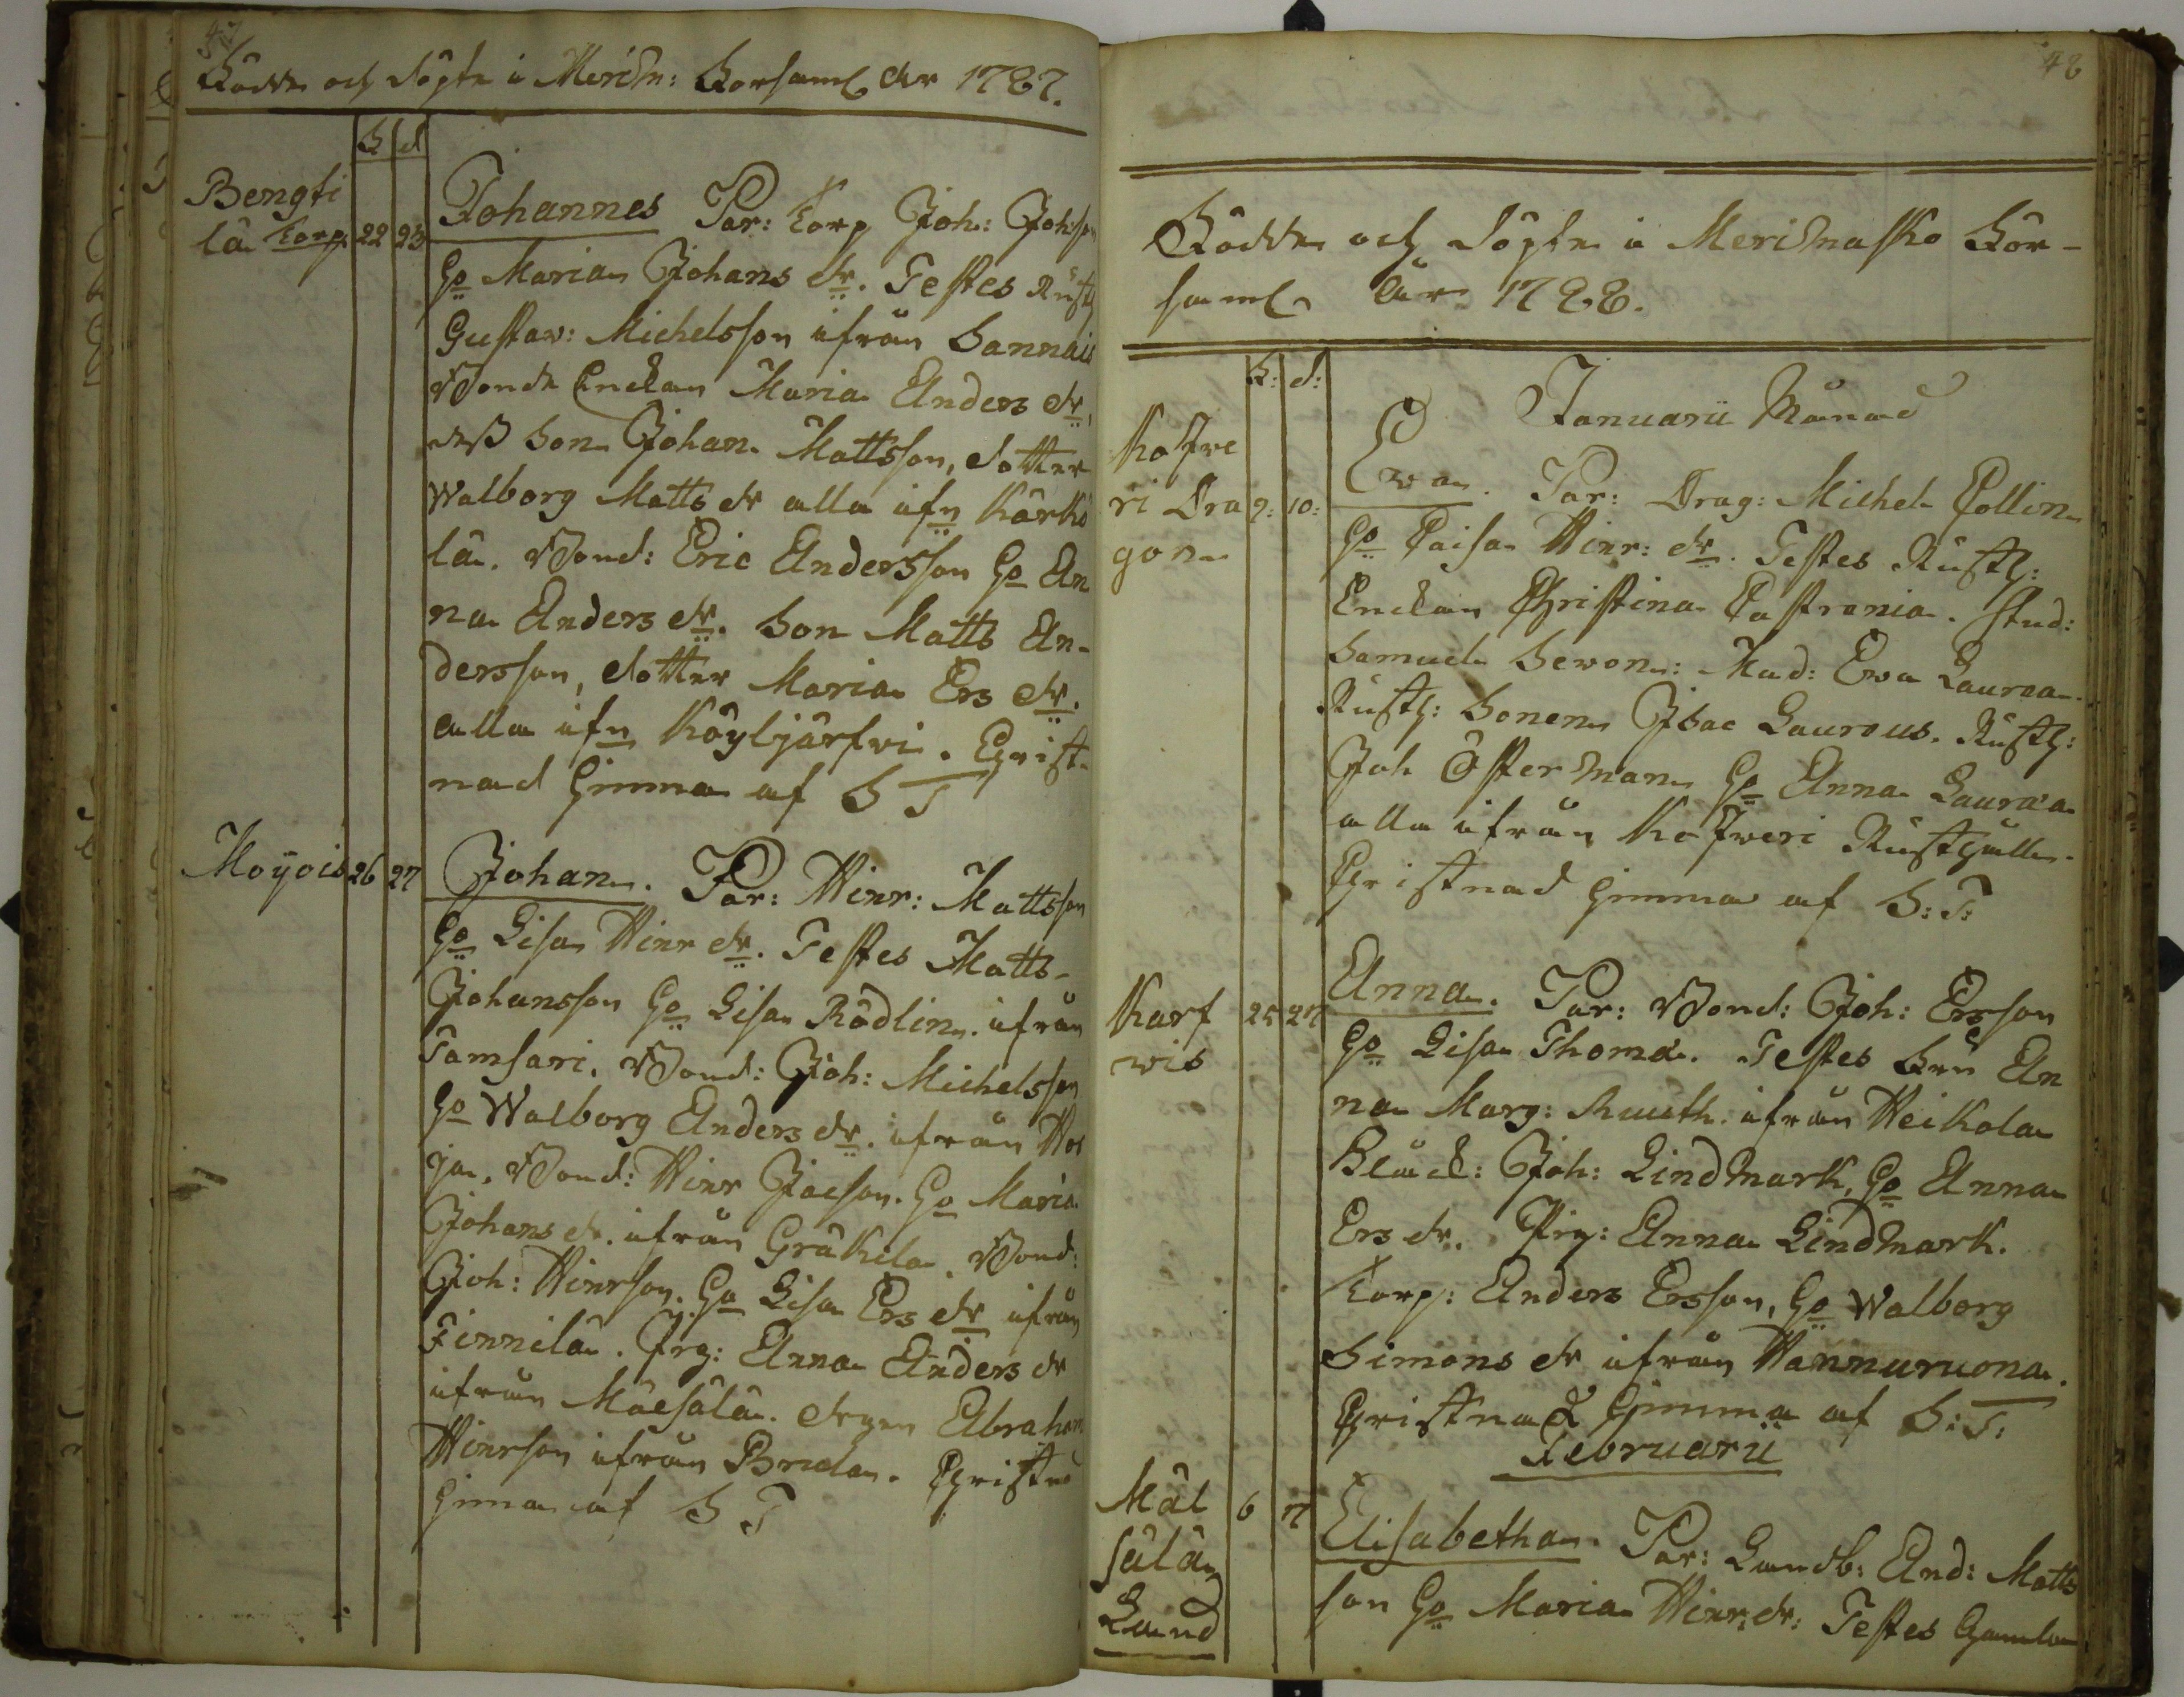 47
Födde och Döpte i Merim: Församl År 1787.
F d
Bengti
lä Torp. 22 23
Johannes Par: Torp Joh: Johsson
Ho Maria Johans dr. Testes Rust
Gustav: Michelsson ifrån Sannais
Bonde Enckan Maria Anders dr,
dess Son Johan Mattsson, dotter
Walborg Matts dr alla ifn Kärko
lä. Bond: Eric Andersson Ho An
na Anders dr. Son Matts An-
dersson, dotter Maria Ers dr.
alla ifn Köyljärfvi. Christ-
nad Hemma af S T
Moÿois 26 27
Johan. Par: Hinr: Mattsson
Ho Lisa Hinr dr. Testes Matts
Johansson Ho Lisa Rödlin ifrån
Tamsari. Bond: Joh: Michelsson
Ho Walborg Anders dr. ifrån
ja. Bond: Hinr Jacson. Ho Maria
Johans dr. ifrån Gräkila. Bond:
Joh: Hinrson. Ho Lisa Ers dr ifrån
Finnilä. Prg: Anna Anders dr
ifrån Mäesälä. drgen Abraham
Hinrson ifrån Prida. Christnad
Hema af S T
48
Födde och Döpte i Merimasko För-
saml År 1788.
F: d:
Januarii Månad
Kofve
ri Dra 9: 10:
gon
Ewa. Par: Drag: Michel Collin
Ho Caisa Hinr: dr. Testes Rusth:
Enckan Christina Castrenia. Stud:
Samuel Sevon: Mad: Ewa Lauraea.
Rusth: Sonen Isac Laurous. Rusth:
Joh Österman Ho Anna Lauraea
alla ifrån Kofveri Rusthåll.
Christnad Hemma af S: T:
Karf 25 27
wis
Anna. Par: Bond: Joh: Ersson
Ho Lisa Thomæ. Testes Fru An
na Marg: Ruuth. ifrån Heikola
Fläck: Joh: Lindmark, Ho Anna
Ers dr. Pig: Anna Lindmark.
Torp: Anders Ersson, Ho Walborg
Simons dr ifrån Hannuruona.
Christnad Hemma af S: T:
Februarii
Mäl 6 7
sälä
Land
Elisabetha. Par: Landb: And: Matts
son Ho Maria Hinr: dr: Testes Gamla